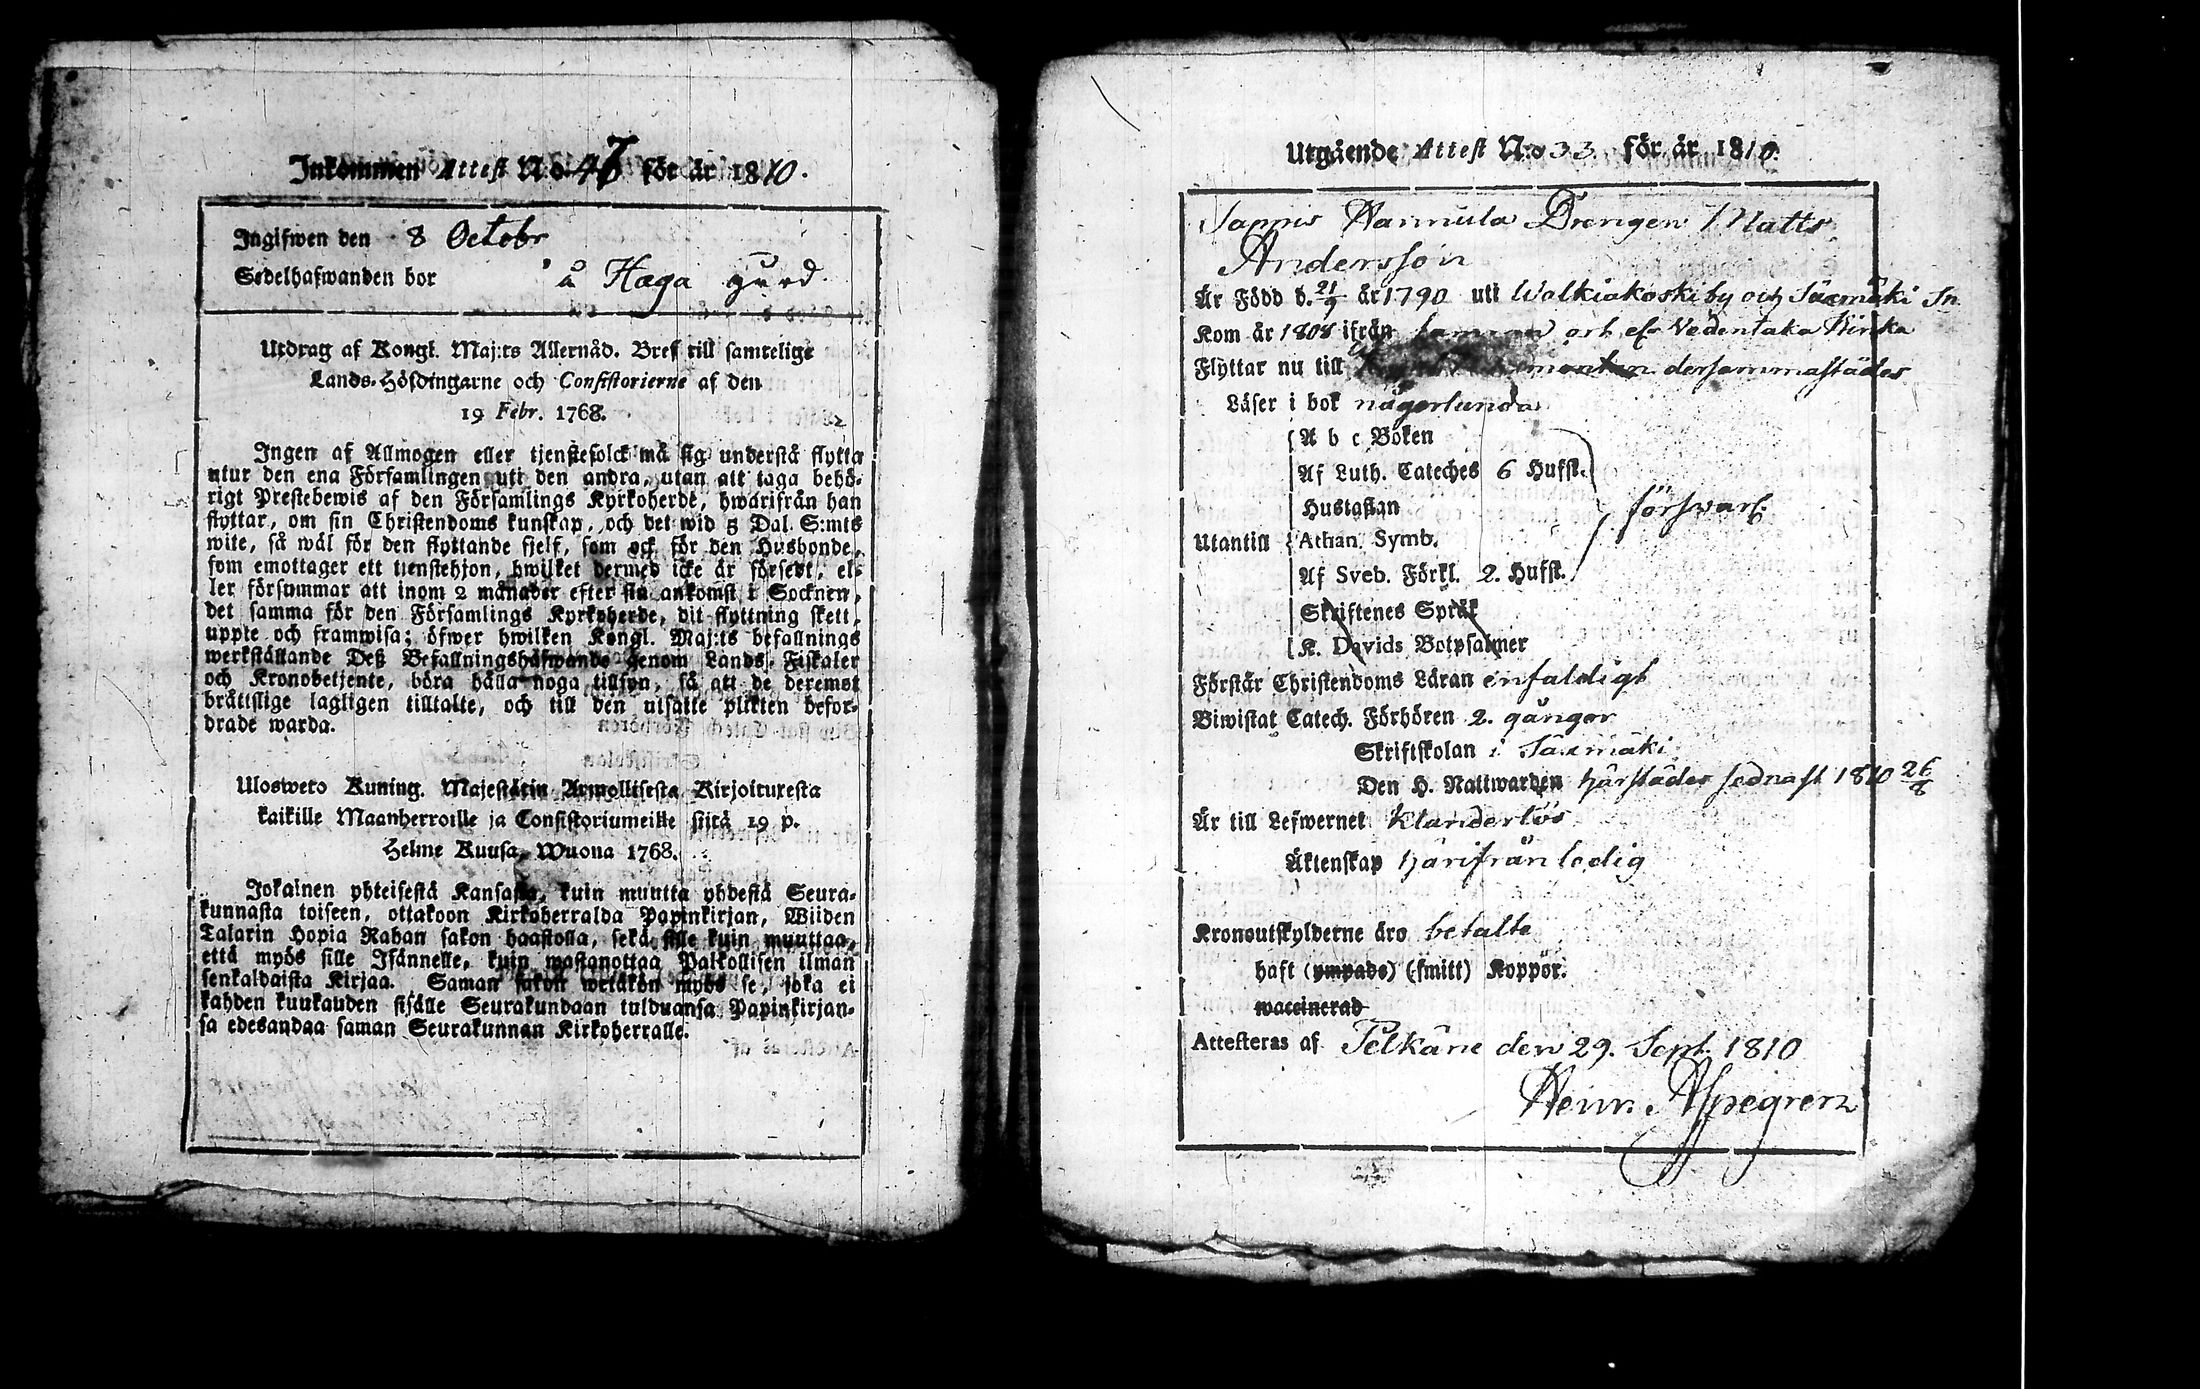 Inkommen Attest N:o 47 för år 1810.
Ingifwen den 8 Octobr
Sedelhafwanden bor å Haga gård
Utdrag af Kongl. Maj:ts Allernåd. Bref till samtelige
Lands-Höfdingarne och Consistorierne af den
19 Febr. 1768.
Ingen af Allmogen eller tjenstefolck må sig understå flytta
utur den ena Församlingen uti den andra, utan att taga behö-
rigt Prestebewis af den Församlings Kyrkoherde, hwarifrån han
flyttar, om sin Christendoms kunskap, och det wid 5 Dal. S:mts
wite, så wäl för den flyttande sjelf, som ock för den Husbonde,
som emottager ett tienstehjon, hwilket dermed icke är försedt, el-
ler försummar att inom 2 månader efter sin ankomst i Socknen,
det samma för den Församlings Kyrkoherde, dit flyttning skett,
uppte och framwisa; öfwer hwilken Kongl. Maj:ts befallnings
werkställande Deß Befallningshafwande genom Lands-Fiskaler
och Kronobetjente, böra hålla noga tillsyn, så att de deremot
bråttslige lagligen tilltalte, och till den utsatte plikten befor-
drade warda.
Ulosweto Kuning. Majestätin Armollisesta Kirjoituxesta
kaikille Maanherroille ja Consistoriumeille siitä 19 p.
Helme Kuusa, Wuona 1768.
Jokainen yhteisestä Kansasta, kuin muutta yhdestä Seura-
kunnasta toiseen, ottakoon Kirkoherralda Papinkirjan, Wiiden
Talarin Hopia Rahan sakon haastolla, sekä sille kuin muuttaa,
että myös sille Isännelle, kuin wastanottaa Palkollisen ilman
senkaldaista Kirjaa. Saman sakon wetäkön myös se, joka ei
kahden kuukauden sisälle Seurakundaan tulduansa Papinkirjan-
sa edesandaa saman Seurakunnan Kirkoherralle.
Utgående Attest N:o 33 för år 1810.
Sappis Hannula Drengen Matts
Andersson
Är Född d. 21/9 år 1790 uti Walkiakoski by och Säxmäki Sn
Kom år 1808 ifrån och Vedentaka Hinka
Flyttar nu till dersammastädes
Läser i bok någorlunda
A b c Boken
Af Luth. Cateches 6 Hufst.
Hustaflan
Utantill Athan. Symb. försvarl.
Af Sveb. Förkl. 2. Hufst.
Skriftenes Språk
K. Davids Botpsalmer
Förstår Christendoms Läran enfaldigt
Biwistat Catech. Förhören 2. gånger
Skriftskolan i Säxmäki
Den H. Nattwarden härstädes sednast 1810 26/8
Är till Lefwernet klanderlös
Äktenskap härifrån ledig
Kronoutskylderne äro betalte
haft (ympade) (smitt) Koppor.
waccinerad
Attesteras af Pelkäne den 29. Sept. 1810
Henr. Aspegren